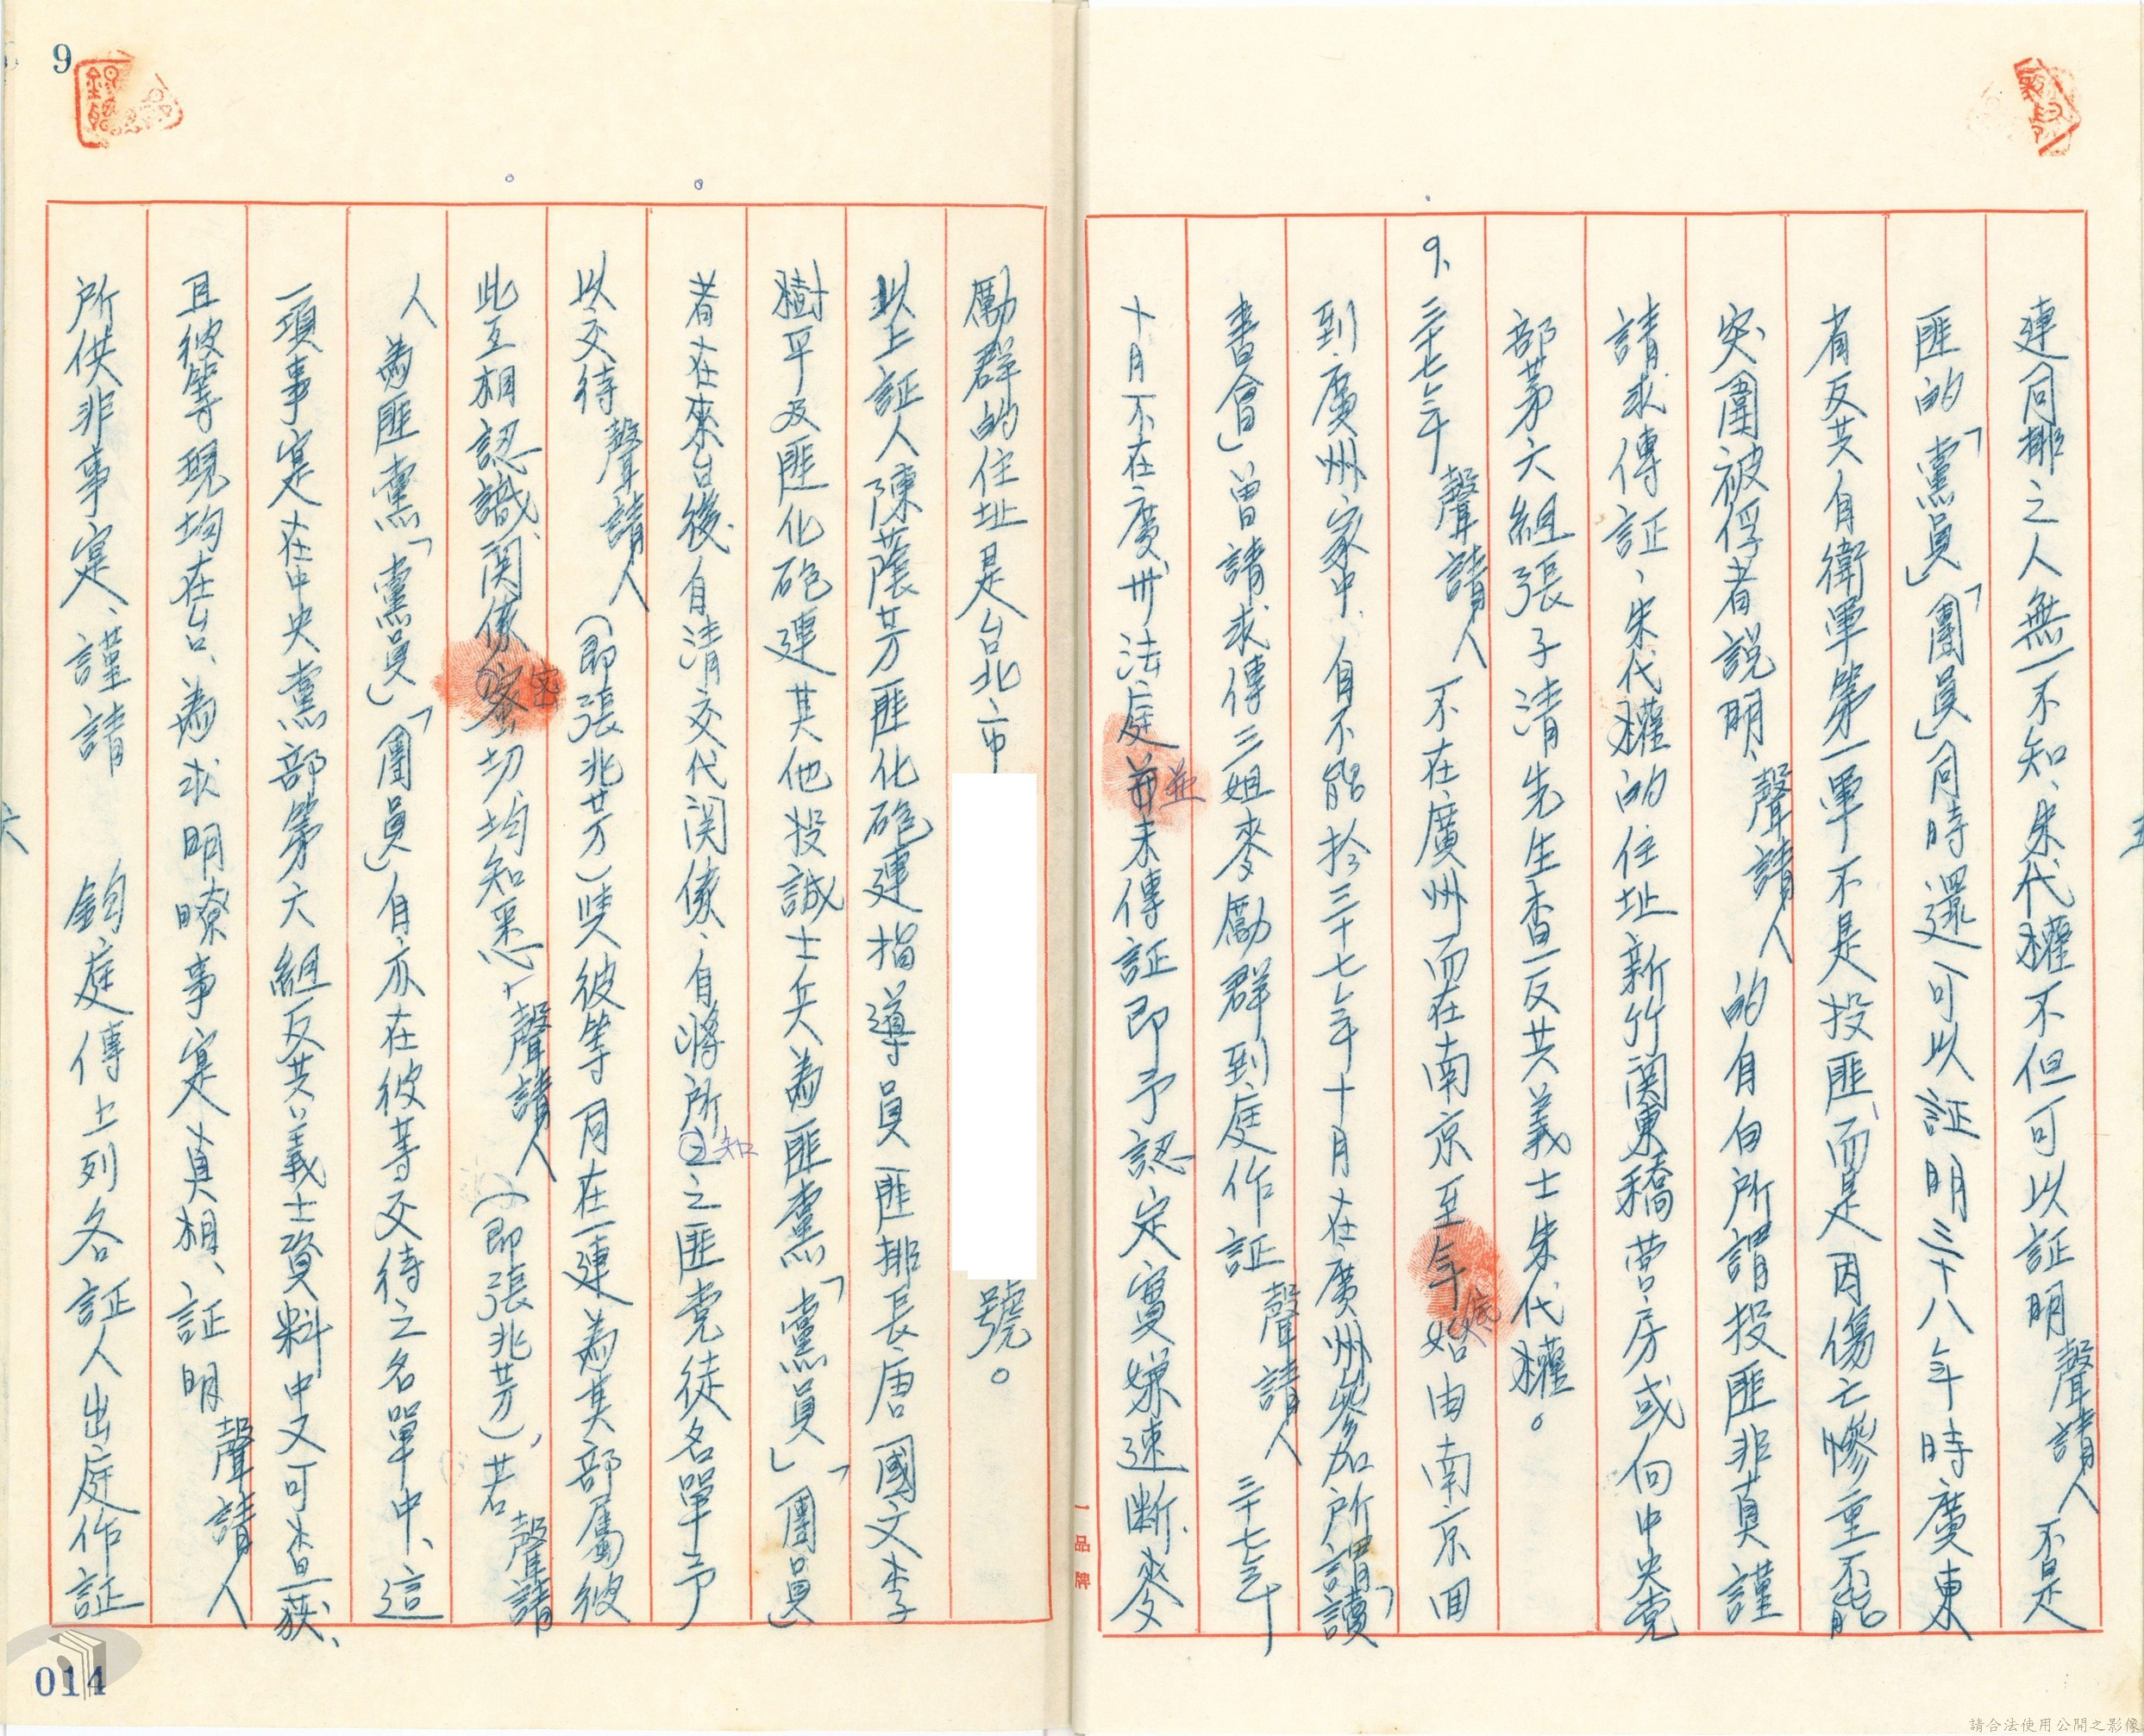 連同排之人無一不知、朱代權不但可以証明聲請人不是
匪的「黨員」「團員」同時還可以証明三十八年時廣東
省反共自衛軍第一軍不是投匪、而是因傷亡慘重不能
突圍被俘者說明、聲請人的自白所謂投匪非真謹
請求傳証、朱代權的住址新竹関東橋營房或向中央党
部第六組張子清先生查一反共義士朱代權。
9、三十七年聲請人不在廣州而在南京至年底始由南京回
到廣州家中、自不能於三十七年十月在廣州參加所謂「讀
書會」曾請求傳三姐麥勵群到庭作証聲請人三十七年
十月不在廣州法庭並未傳証即予認定實嫌速断、麥
勵群的住址是台北市
號。
以上証人陳蔭芳匪化砲連指導員匪排長唐國文李
樹平及匪化砲連其他投誠士兵為匪黨「黨員」「團員」
者在來台後、自清交代関係、自將所知之匪党徒名單予
以交待聲請人（即張兆芳）與彼等同在一連為其部屬彼
此互相認識、関係密切均知悉、聲請人（即張兆芳）、若聲請
人為匪黨「黨員」「團員」自亦在彼等交待之名單中、這
一項事实在中央黨部第六組反共義士資料中又可查一获、
且彼等現均在台、為求明瞭事实真相、証明聲請人
所供非事实、謹請 鈞庭傳上列各証人出庭作証
9
014
一品牌
請合法使用公開之影像